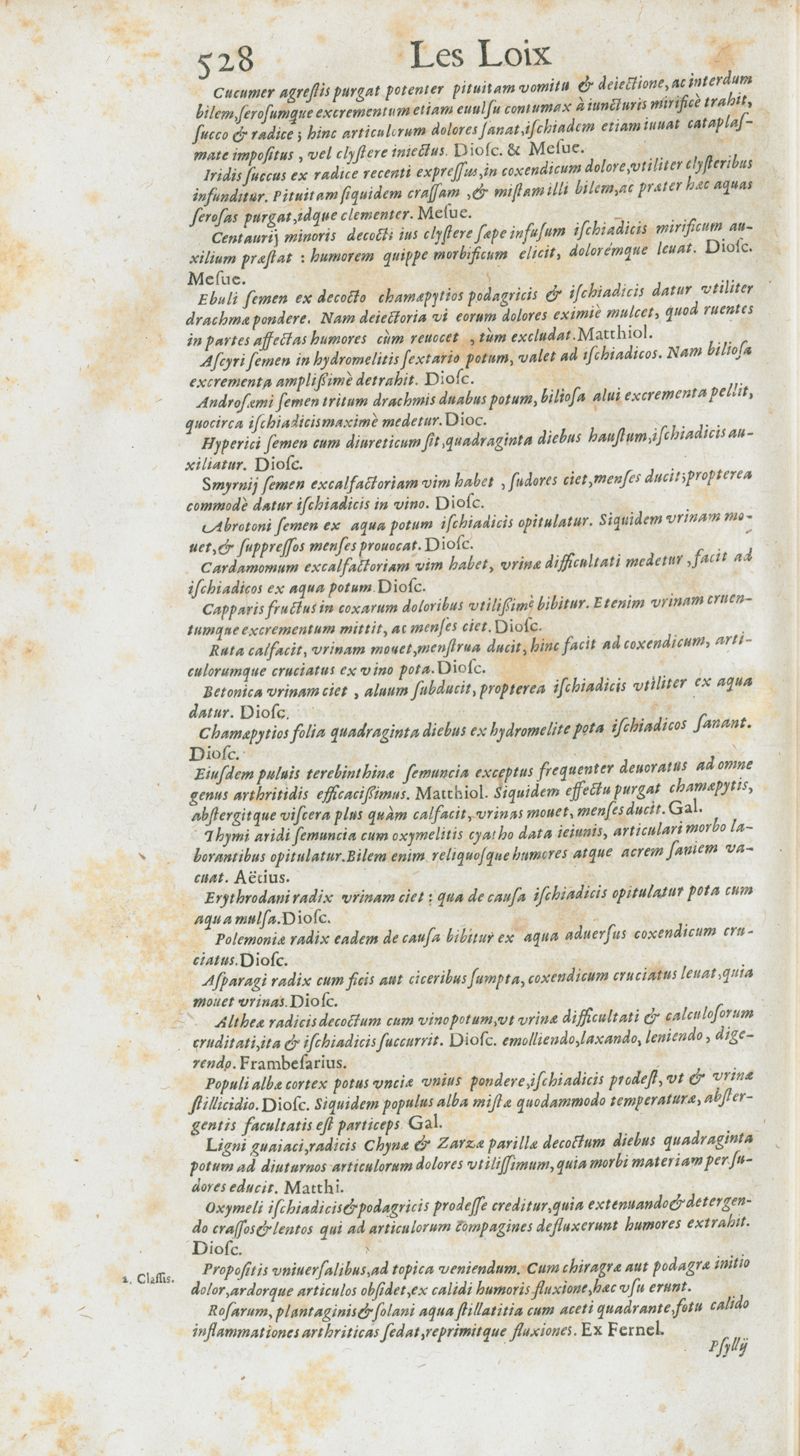 528 Les Loix
Cucumer agreſtis purgat potenter pituitam vomitu & deiectione, ac interdum
bilem, ſeroſumque excrementum etiam euulſu contumax à iuncturis mirificè trahit,
ſucco & radice ; hinc articulorum dolores ſanat, iſchiadem etiam iuuat cataplaſ-
mate impoſitus , vel clyſtere iniectus. Dioſc. & Meſue.
Iridis ſuccus ex radice recenti expreſſus, in coxendicum dolore, vtiliter clyſteribus
infunditur. Pituitam ſiquidem craſſam ,& miſtam illi bilem, ac præter hæc aquas
ſeroſas purgat, idque clementer. Meſue.
Centaurij minoris decocti ius clyſtere ſæpe infuſum iſchiadicis mirificum au-
xilium præſtat : humorem quippe morbificum elicit, dolorémque leuat. Dioſc.
Meſue.
Ebuli ſemen ex decocto chamæpytios podagricis & iſchiadicis datur vtiliter
drachmæ pondere. Nam deiectoria vi eorum dolores eximiè mulcet, quod ruentes
in partes affectas humores cùm reuocet , tùm excludat. Matthiol.
Aſcyri ſemen in hydromelitis ſextario potum, valet ad iſchiadicos. Nam bilioſa
excrementa ampliſſimè detrahit. Dioſc.
Androſæmi ſemen tritum drachmis duabus potum, bilioſa alui excrementa pellit,
quocirca iſchiadicis maximè medetur. Dioc.
Hyperici ſemen cum diureticum ſit, quadraginta diebus hauſtum, iſchiadicis au-
xiliatur. Dioſc.
Smyrnij ſemen excalfactoriam vim habet , ſudores ciet, menſes ducit; propterea
commodè datur iſchiadicis in vino. Dioſc.
Abrotoni ſemen ex aqua potum iſchiadicis opitulatur. Siquidem vrinam mo-
uet, & ſuppreſſos menſes prouocat. Dioſc.
Cardamomum excalfactoriam vim habet, vrinæ difficultati medetur , facit ad
iſchiadicos ex aqua potum. Dioſc.
Capparis fructus in coxarum doloribus vtiliſſimè bibitur. Etenim vrinam cruen-
tumque excrementum mittit, ac menſes ciet. Dioſc.
Ruta calfacit, vrinam mouet, menſtrua ducit, hinc facit ad coxendicum, arti-
culorumque cruciatus ex vino pota. Dioſc.
Betonica vrinam ciet , aluum ſubducit, propterea iſchiadicis vtiliter ex aqua
datur. Dioſc.
Chamæpytios folia quadraginta diebus ex hydromelite pota iſchiadicos ſanant.
Dioſc.
Eiuſdem puluis terebinthinæ ſemuncia exceptus frequenter deuoratus ad omne
genus arthritidis efficaciſſimus. Matthiol. Siquidem effectu purgat chamæpytis,
abſtergitque viſcera plus quàm calfacit, vrinas mouet, menſes ducit. Gal.
Thymi aridi ſemuncia cum oxymelitis cyatho data ieiunis, articulari morbo la-
borantibus opitulatur. Bilem enim reliquoſque humores atque acrem ſaniem va-
cuat. Aëtius.
Erythrodani radix vrinam ciet : qua de cauſa iſchiadicis opitulatur pota cum
aqua mulſa. Dioſc.
Polemoniæ radix eadem de cauſa bibitur ex aqua aduerſus coxendicum cru-
ciatus. Dioſc.
Aſparagi radix cum ficis aut ciceribus ſumpta, coxendicum cruciatus leuat, quia
mouet vrinas. Dioſc.
Altheæ radicis decoctum cum vino potum, vt vrinæ difficultati & calculoſorum
cruditati, ita & iſchiadicis ſuccurrit. Dioſc. emolliendo, laxando, leniendo, dige-
rendo. Frambeſarius.
Populi albæ cortex potus vnciæ vnius pondere, iſchiadicis prodeſt, vt & vrinæ
ſtillicidio. Dioſc. Siquidem populus alba miſtæ quodammodo temperaturæ, abſter-
gentis facultatis eſt particeps. Gal.
Ligni guaiaci, radicis Chynæ & Zarzæ parillæ decoctum diebus quadraginta
potum ad diuturnos articulorum dolores vtiliſſimum, quia morbi materiam per ſu-
dores educit. Matthi.
Oxymeli iſchiadicis & podagricis prodeſſe creditur, quia extenuando & detergen-
do craſſos & lentos qui ad articulorum cõmpagines defluxerunt humores extrahit.
Dioſc.
Propoſitis vniuerſalibus, ad topica veniendum. Cum chiragræ aut podagræ initio
2. Claſſis.
dolor, ardorque articulos obſidet, ex calidi humoris fluxione, hæc vſu erunt.
Roſarum, plantaginis & ſolani aqua ſtillatitia cum aceti quadrante, fotu calido
inflammationes arthriticas ſedat, reprimitque fluxiones. Ex Fernel.
Pſyllij